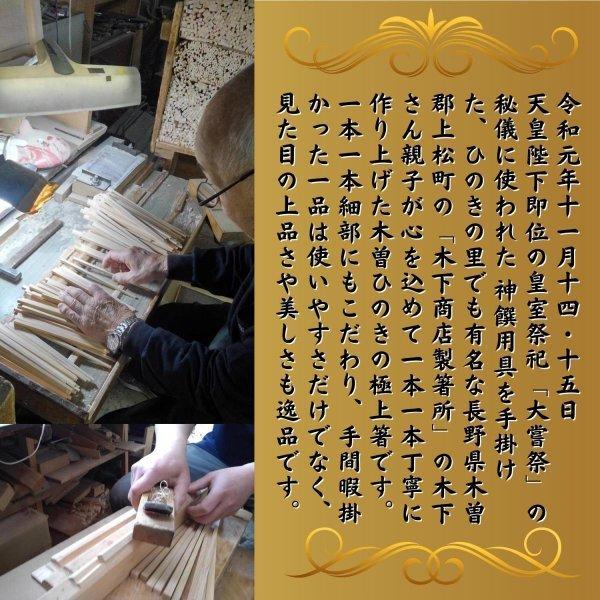 令和元年十一月十四・十五日
天皇陛下即位の皇室祭祀「大嘗祭」の
秘儀に使われた 神饌用具を手掛け
た、ひのきの里でも有名な長野県木曽
郡上松町の「木下商店製箸所」の木下
さん親子が心を込めて一本一本丁寧に
作り上げた木曽ひのきの極上箸です。
一本一本細部にもこだわり、手間暇掛
かった一品は使いやすさだけでなく、
見た目の上品さや美しさも逸品です。